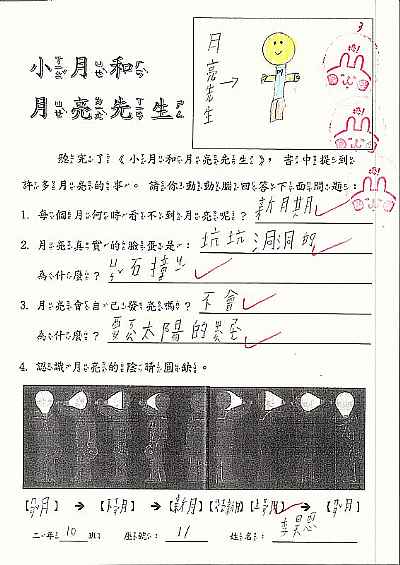 3
小月和
月亮先生
月亮先生→
聽完了《小月和月亮先生》，書中提到
許多月亮的事。請你動動腦回答下面問題：
1. 每個月何時看不到月亮呢？新月期
2. 月亮真實的臉蛋是：坑坑洞洞的
為什麼？石撞
3. 月亮會自己發亮嗎？不會
為什麼？太陽的
4. 認識月亮的陰晴圓缺。
【月】→【下月】→【新月】【上月】→【月】
二年10班 座號：11 姓名：李昊恩